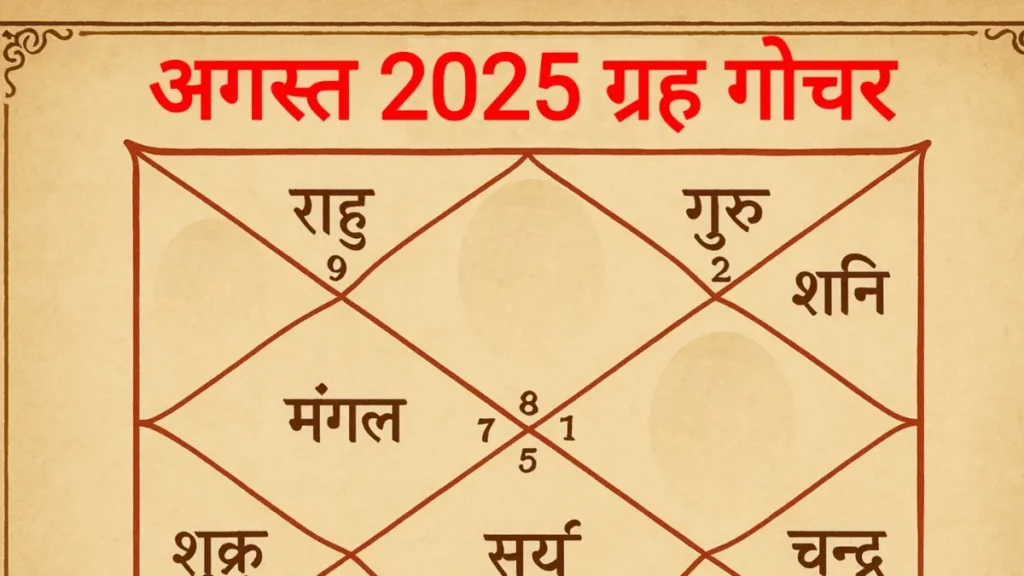 अगस्त 2025 ग्रह गोचर
राहु
गुरु
9
2
शनि
मंगल
8
7
1
5
शुक्र
सूर्य
चन्द्र